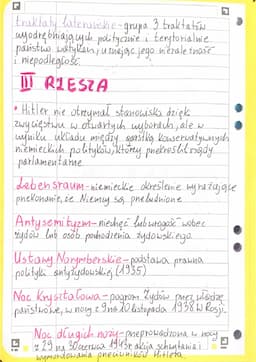 traktaty laterańskie - grupa 3 traktatów
wyodrębniających politycznie i terytorialnie
państwo watykan, uznając jego niezależność
i niepodległość.
III RZESZA
• Hitler nie otrzymał stanowiska dzięk
zwycięstwu w otwartych wyborach, ale w
wyniku układu między garstką konserwatywnych
niemieckich polityków, którzy przekreślili rządy
parlamentarne
Lebensraum - niemieckie określenie wyrażające
przekonanie, że Niemcy są przeludnione
Antysemityzm - niechęć lub wrogość wobec
żydów lub osób pochodzenia żydowskiego
Ustawy Norymberskie - podstawa prawna
polityki antyżydowskiej (1935)
Noc Kryształowa - pogrom Żydów przez władze
państwowe, w nocy z 9 na 10 listopada 1938 W Rzeszy.
Noc długich noży - przeprowadzona w nocy
z 29 na 30 czerwca akcja schwytania i
wymordowania przeciwników Hitlera